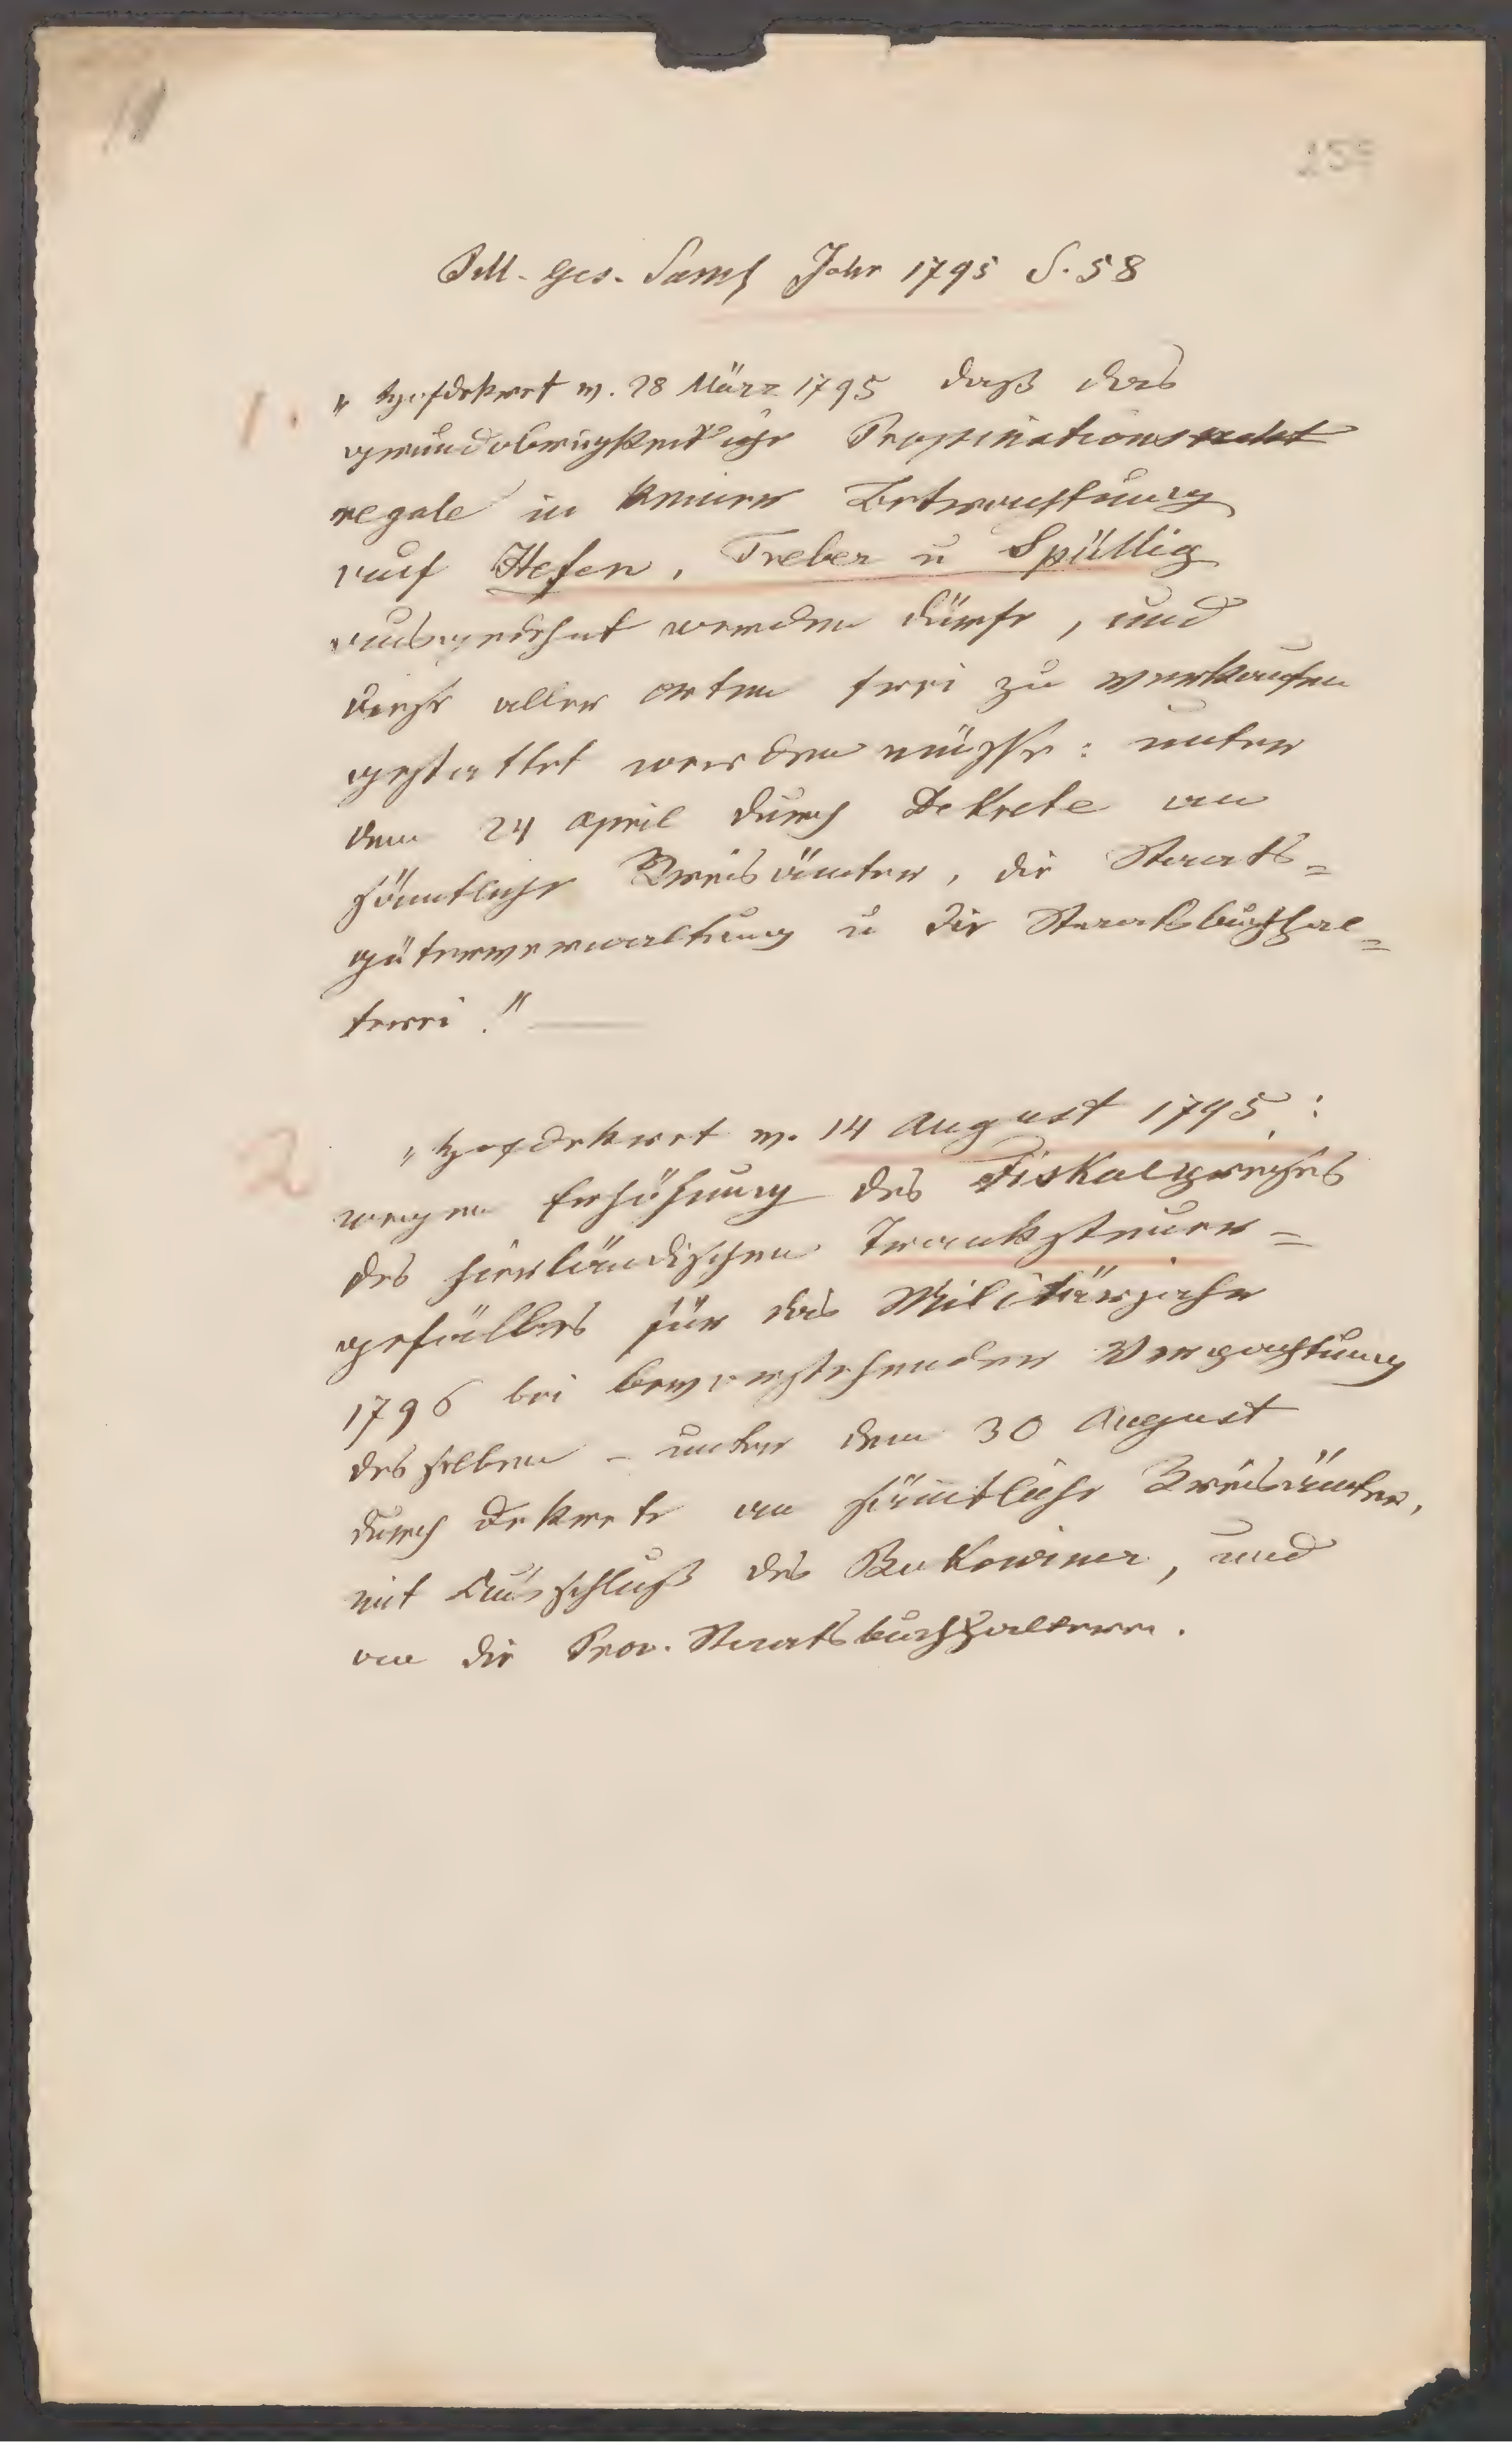 159
Pill. Ges. Saml Jahr 1795 S. 58
1. „Hofdekret v. 28 März 1795 daß das
grundobrigkeitliche Propinationsrecht
regale in keiner Betrachtung
auf Hefen, Treber u Spüllig
ausgedehnt werden dürfe, und
diese aller orten frei zu verkaufen
gestattet werden müsse: unter
dem 24 April durch Dekrete an
sämtliche Kreisämter, die Staats=
güterverwaltung u die Staatsbuchhal=
terei."
2 „Hofdekret v. 14 August 1795:
wegen Erhöhung des Fiskalpreises
des hierländischen Tranksteuer=
gefälles für das Militärjahr
1796 bei bevorstehender Verpachtung
desselben – unter dem 30 August
durch Dekrete an sämtliche Kreisämter,
mit Ausschluß des Bukowiner, und
an die Prov. Staatsbuchhalterei.